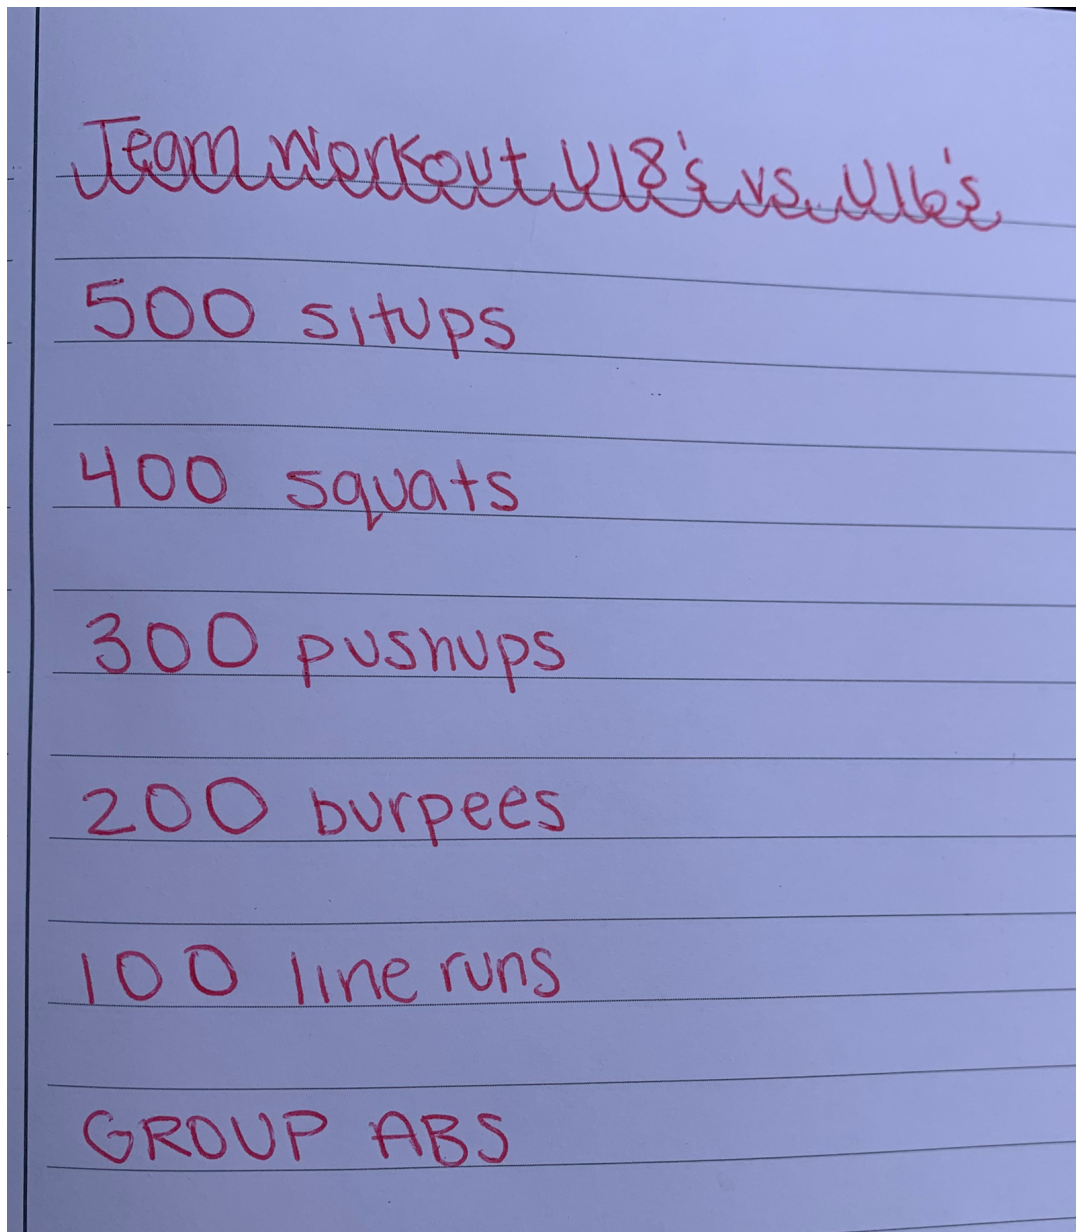 Team Workout U18's vs. U16's
500 situps
400 squats
300 pushups
200 burpees
100 line runs
GROUP ABS